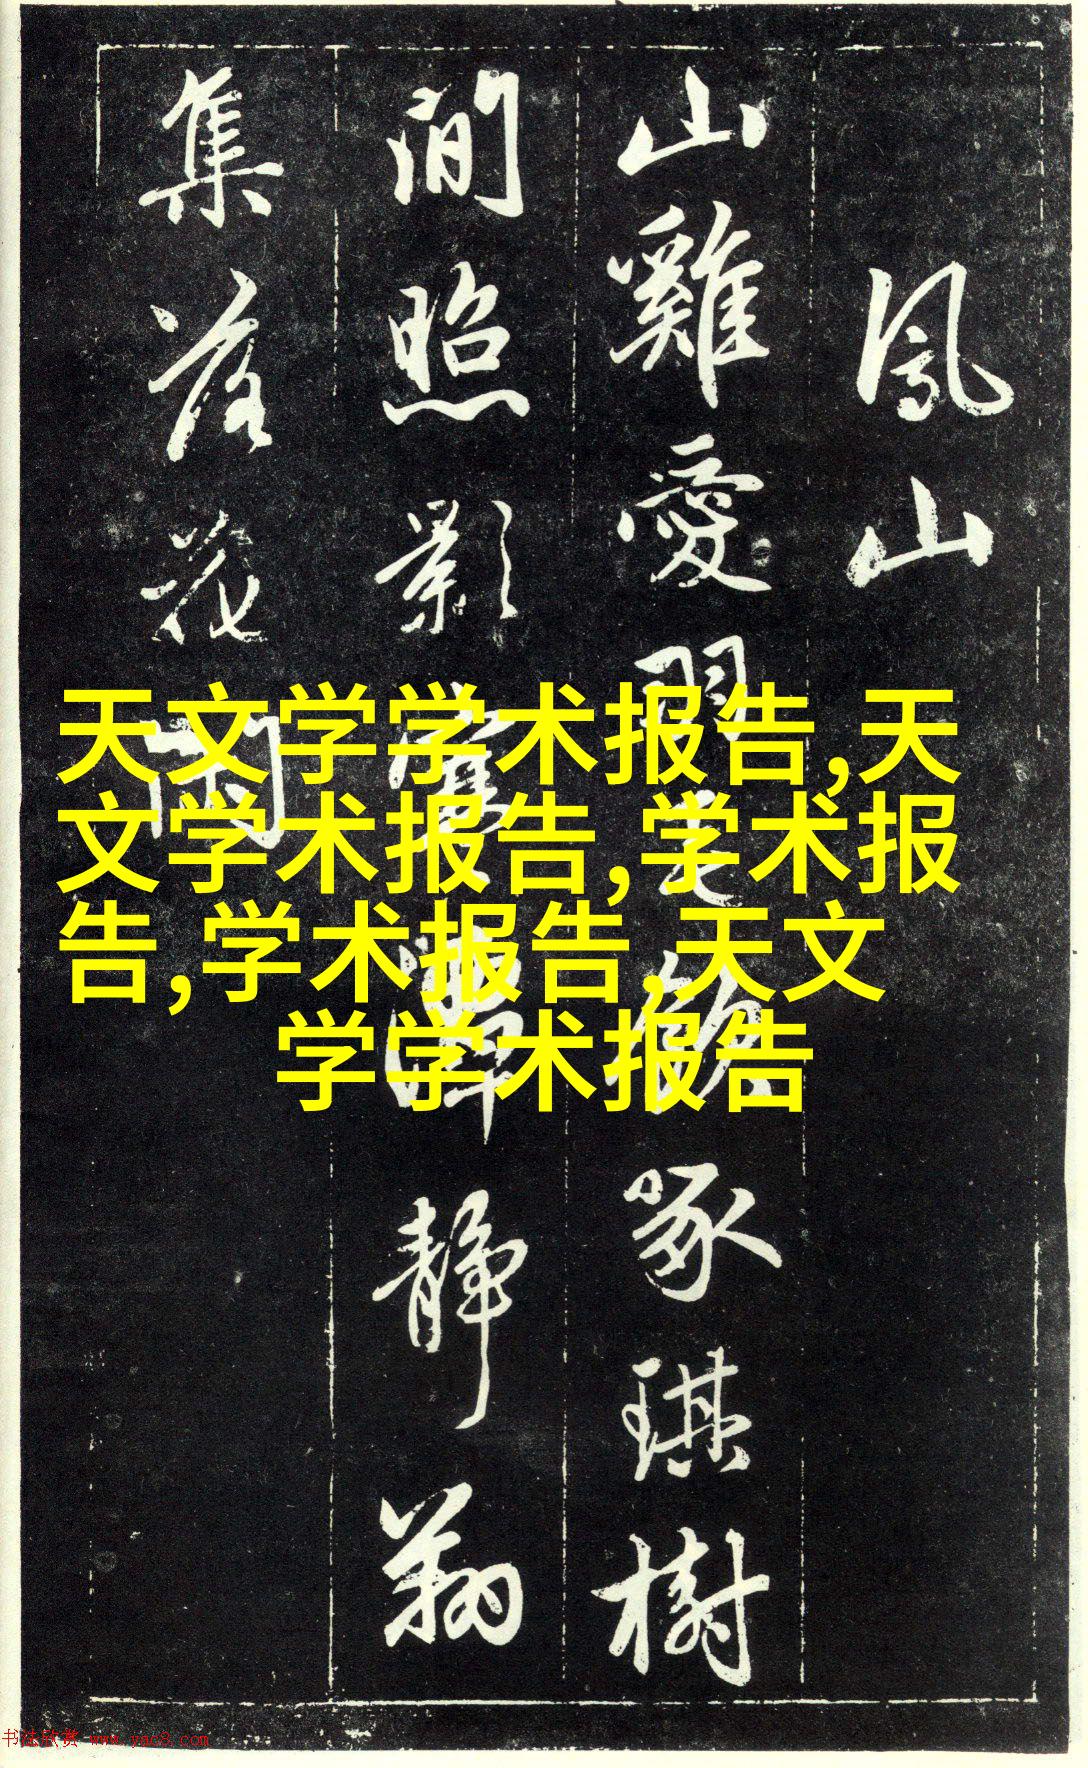 鳳山
山雞愛羽毛飲啄琪樹
間照影潭靜翔
集落花閑
天文学学术报告,天
文学术报告,学术报
告,学术报告,天文
学学术报告
书法欣赏 www.yac8.com